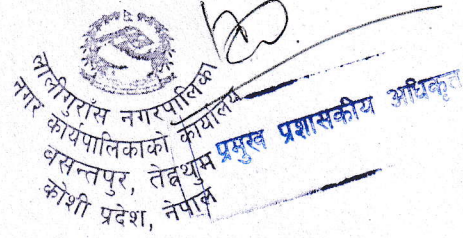 लालीगुराँस नगरपालिका
नगर कार्यपालिकाको कार्यालय
वसन्तपुर, तेह्रथुम
कोशी प्रदेश, नेपाल
प्रमुख प्रशासकीय अधिकृत